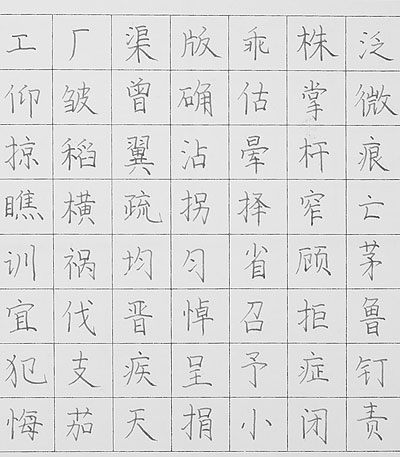 工厂渠版乖株泛
仰皱曾确估掌微
掠稻翼沾晕杆痕
瞧横疏拐择窄亡
训祸均匀省顾茅
宜伐晋悼召拒鲁
犯支疾呈予症钉
悔茄天捐小闭责